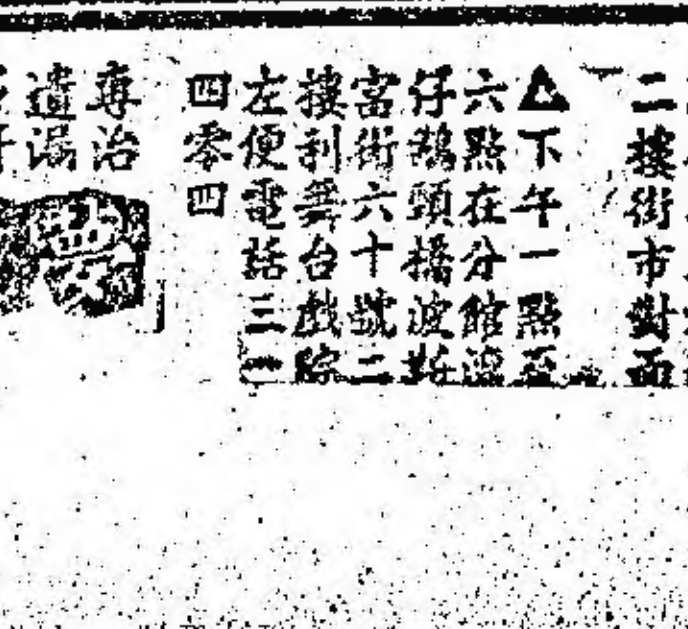 二樓街市對面
▲下午一點至
六點在分館灣
仔鵝頭橋波斯
富街六十號二
樓利舞台戲院
左便電話三二
四零四
專治
遺漏